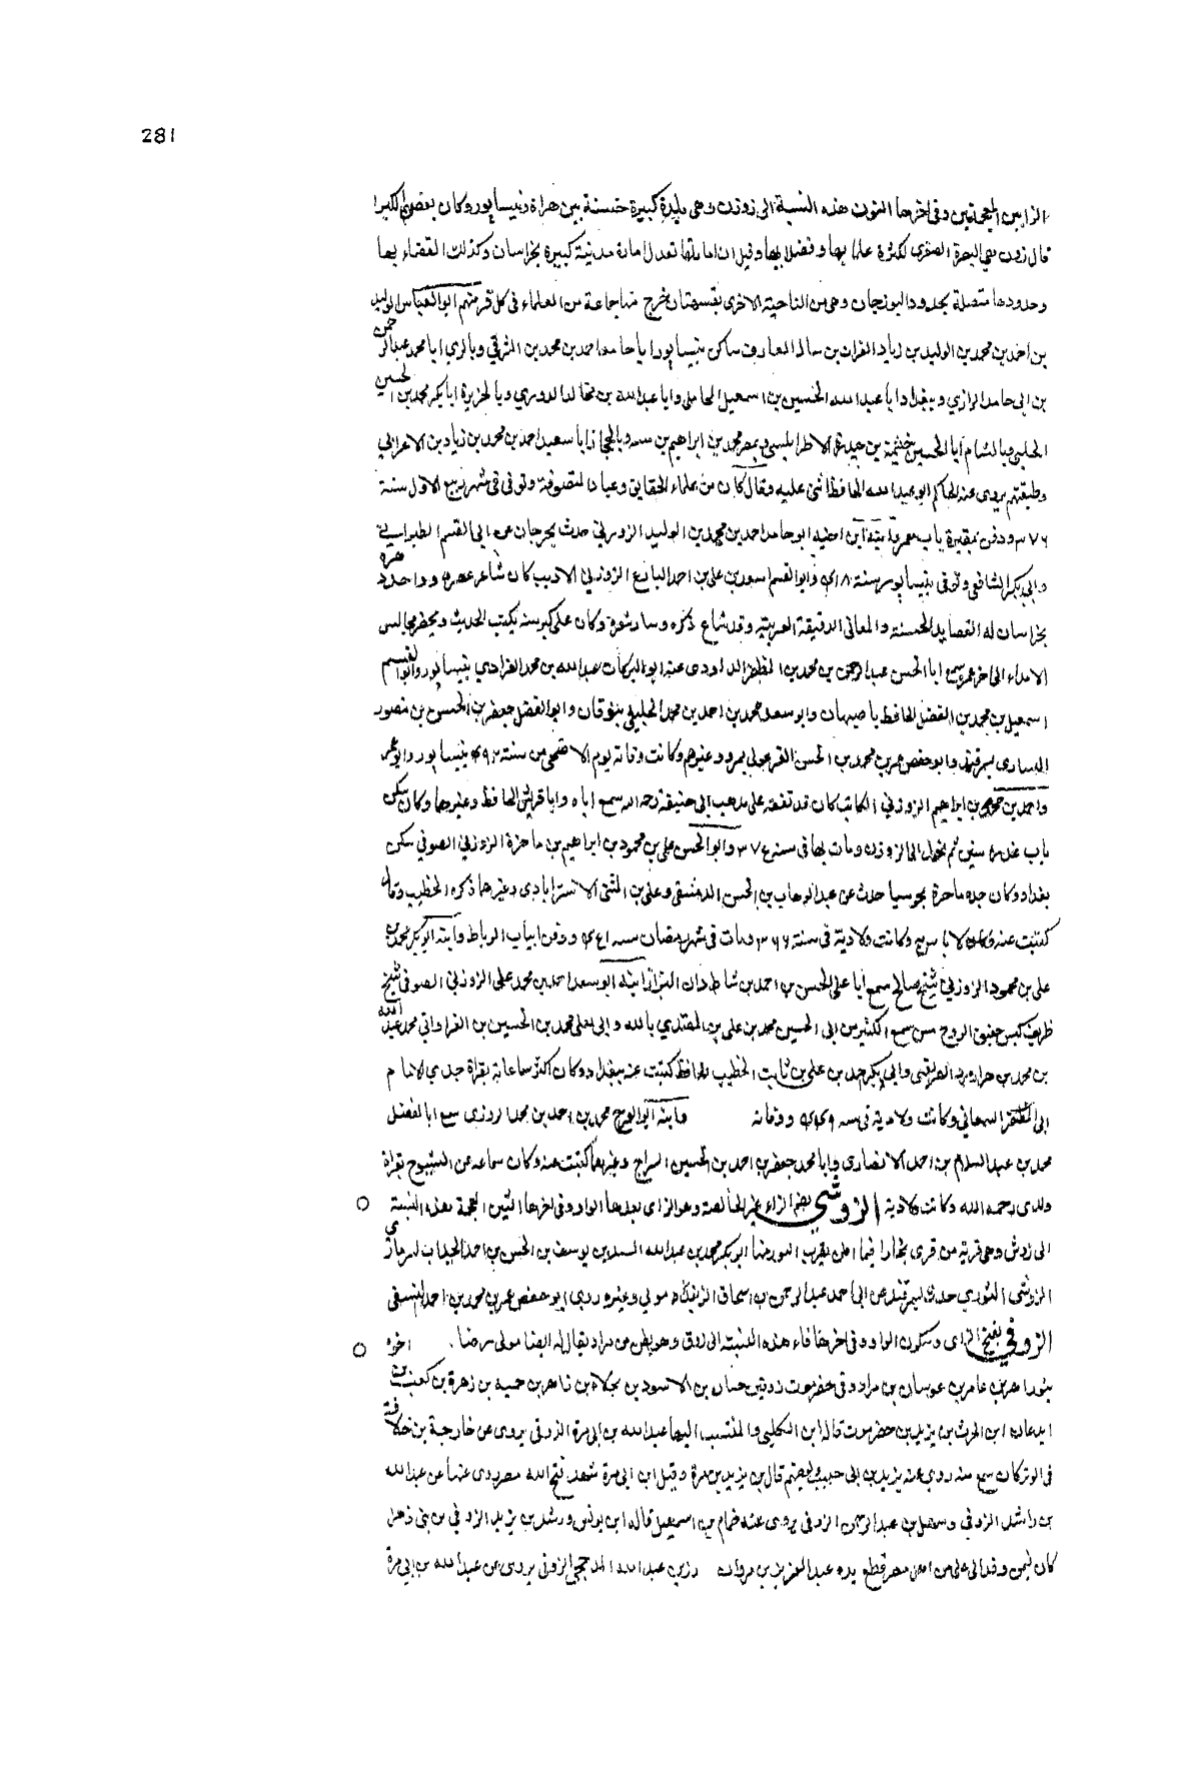 281
الزاين المعجمتين وفى اخرها النون هذه النسبة الى زوزن وهى بليدة كبيرة حسنة بين هراة ونيسابور وكان بعض الكبرا
قال زوزن هى البصرة الصغرى لكثرة علمايها وفضلايها وقيل ان اعمالها تعدل اعمال مدينة كبيرة بخراسان وكذلك القضاء بها
وحدودها متصلة بحدود البوزجان وهى من الناحية الاخرى بقهستان خرج منها جماعة من العلماء فى كل فن منهم ابو العباس الوليد
بن احمد بن محمد بن الوليد بن زياد الفرات بن سالم المعارف ساكن بنيسابور ابا حامد احمد بن محمد بن الشرقي وبالري ابا محمد عبد الرحمن
بن ابى حاتم الرازي وببغداد ابا عبد الله الحسين بن اسمعيل المحاملى وابا عبد الله بن مخلد الدوري وبالجزيرة ابا بكر محمد بن الحسين
الحلبي وبالشام ابا الحسين خيثمة بن حيدرة الاطرابلسى وبمصر محمد بن ابراهيم بن وبالحجاز ابا سعيد احمد بن محمد بن زياد بن الاعرابي
وطبقتهم يروى عنه الحاكم ابو عبد الله الحافظ اثنى عليه وقال كان من علماء الحقايق وعباد المتصوفة وتوفى فى شهر ربيع الاول سنة
٣٧٦ ودفن بمقبرة باب معمر ابنه ابو حامد احمد بن محمد بن الوليد الزوزني حدث بجرجان عن ابى القسم الطبراني
وابى بكر الشافعى وتوفى بنيسابور سنة وابو القسم اسعد بن على بن احمد البارع الزوزني الاديب كان شاعر عصره وواحد دهره
بخراسان له القصايد الحسنة والمعانى الدقيقة العربية وقد شاع ذكره وسار شعره وكان على كبر سنه يكتب الحديث ويحضر مجالس
الاملاء الى اخر عمره سمع ابا الحسن عبد الرحمن بن محمد بن المظفر الداودى روى عنه ابو البركات عبد الله بن محمد الفراوي بنيسابور وابو القسم
اسمعيل بن محمد بن الفضل الحافظ باصبهان وابو سعد محمد بن احمد بن محمد الخليلى بنوقان وابو الفضل جعفر بن الحسن بن منصور
بسمرقند وابو حفص عمر بن محمد بن الحسن الفرغولى بمرو وغيرهم وكانت وفاته يوم الاضحى من سنة ٤٩٢ بنيسابور وابو عمر
واحمد بن محمد بن ابراهيم الزوزني الكاتب كان قد تفقه على مذهب ابى حنيفة رحمه الله سمع اباه وابا قريش الحافظ وغيرها وكان سكن
باب عزره سنين ثم تحول الى الزوزن ومات بها فى سنة ٣٧٤ وابو الحسن على بن محمود بن ابراهيم بن ماخرة الزوزني الصوفى سكن
بغداد وكان جده ماخرة مجوسيا حدث عن عبد الوهاب بن الحسن الدمشقى وعلى بن المثنى الاستراباذى وغيرهما ذكره الخطيب وقال
كتبت عنه وكان لا باس به وكانت ولادته فى سنة ٣٦٦ ومات فى شهر رمضان سنة ودفن بباب الرباط وابنه ابو بكر محمد بن
على بن محمود الزوزني شيخ صالح سمع ابا على الحسن بن احمد بن شاذان البزاز ابنه ابو سعد احمد بن محمد على الزوزني الصوفى شيخ
ظريف كيس خفيف الروح حسن سمع الكثير من ابى الحسين محمد بن على بن المهتدي بالله وابى يعلى محمد بن الحسين بن الفراء وابى محمد عبد الله
بن محمد بن الصريفينى وابى بكر احمد بن على بن ثابت الخطيب الحافظ كتبت عنه ببغداد وكان اكثر سماعاته بقراة جدي الامام
ابى المظفر السمعاني وكانت ولادته فى سنة ووفاته وابنه ابو الفرج محمد بن احمد بن محمد الزوزنى سمع ابا الفضل
محمد بن عبد السلام بن احمد الانصارى وابا محمد جعفر بن احمد بن الحسين السراج وغيرهما كتبت عنه وكان سماعه من الشيوخ بقراة
والدى رحمه الله وكانت ولادته الزوشى بضم الزاء غير الخالصة وهو الزاى بعدها الواو وفى اخرها الشين المعجمة هذه النسبة
الى زوش وهى قرية من قرى بخارا فيما اظن بقرب النور منها ابو بكر محمد بن عبد الله السيد بن يوسف بن الحسن بن احمد
الزوشى النوري حدث بسمرقند عن ابى احمد عبد الرحمن بن اسحاق وغيره روى ابو حفص عمر بن محمد بن احمد النسفى
الزوفى بفتح الزاى وسكون الواو وفى اخرها فاء هذه النسبة الى زوف وهو بطن من مراد يقال له ايضا مولى رضا اخوه
بنو زاهر بن عامر بن عوبثان بن مراد وفى حضرموت زوف بن حسان بن الاسود بن بن زاهر بن حمية بن زهرة بن كعب بن
ايدعان ابن الحرث بن يزيد بن حضرموت قاله ابن الكلبى والمنتسب اليها عبد الله بن ابى مرة الزوفى يروى عن خارجة بن حذافة
فى الوتر كان سمع منه روى عنه يزيد بن ابى حبيب وبعضهم قال بن يزيد بن مرة وقيل ابن ابى مرة شهد فتح الله مصر روى عنهما عن عبد الله
بن راشد الزوفى وسهل بن عبد الرحمن الزوفى يروى عنه ضمام بن اسمعيل قاله ابن يونس ورشد بن يزيد الزوفى من بنى ذهل
كان ليمن وفد الى على من اهل مصر فقطع يده عبد العزيز بن مروان رزين عبد الله المذحجى الزوفى يروى عن عبد الله بن ابى مرة